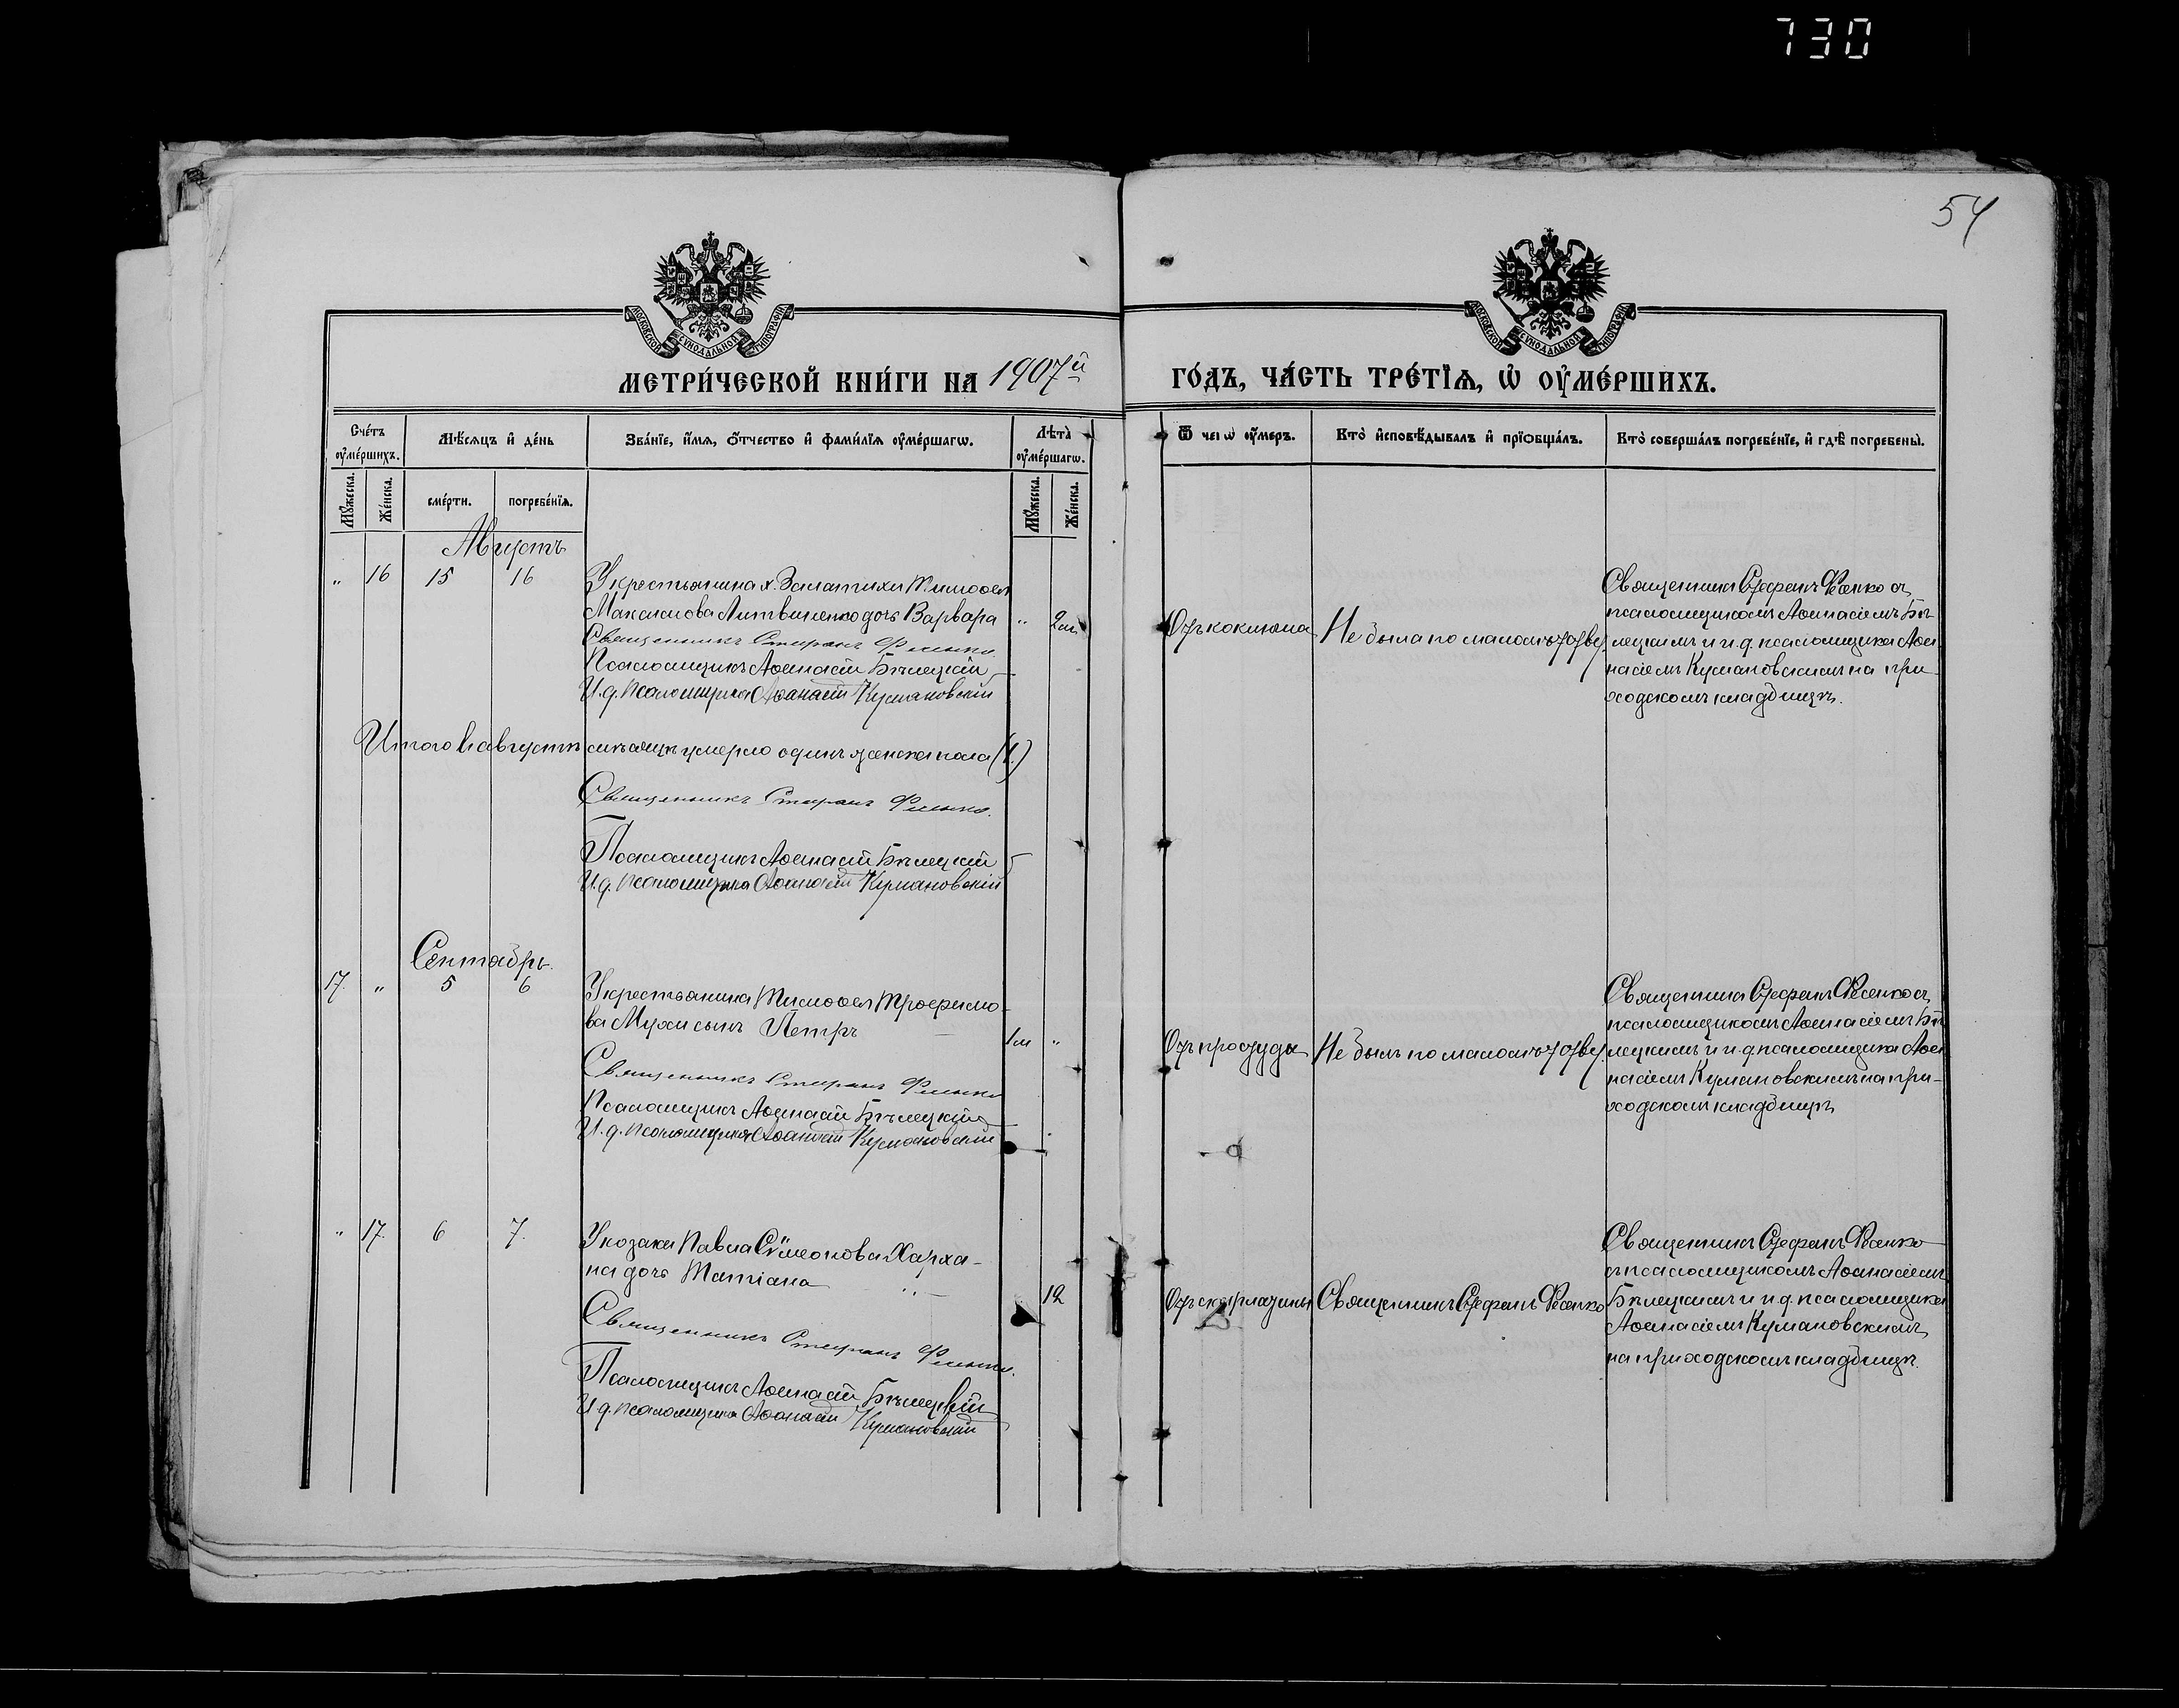 730
54
МОСКОВСКОЙ СѴНОДАЛЬНОЙ ТИПОГРАФІИ
МОСКОВСКОЙ СѴНОДАЛЬНОЙ ТИПОГРАФІИ
МЕТРИ́ЧЕСКОЙ КНИ́ГИ НА 1907й
ГО́ДЪ, ЧА́СТЬ ТРЕ́ТІѦ, Ѡ҆ ОУ҆МЕ́РШИХЪ.
Сче́тъ оу҆ме́ршихъ.
Мѣ́сѧцъ и҆ де́нь
Зва́нїе, и҆́мѧ, ѻ҆́тчество и҆ фами́лїѧ оу҆ме́ршагѡ.
Лѣта̀ оу҆ме́ршагѡ.
Ѿ чегѡ̀ оу҆́меръ.
Кто̀ и҆сповѣ́дывалъ и҆ прїѻбща́лъ.
Кто̀ соверша́лъ погребе́нїе, и҆ гдѣ̀ погребены̀.
Мꙋ́жеска.
Же́нска.
сме́рти.
погребе́нїѧ.
Мꙋ́жеска.
Же́нска.
Августъ
" 16 15 16
У крестьянина х. Запатихи Тимоѳея
Максимова Литвиненко дочь Варвара
" 2 м.
Священникъ Стефанъ Фесенко
Псаломщикъ Аѳанасій Бѣлецкій
И. д. псаломщика Аѳанасій Кумановскій
Отъ коклюша
Не была по малолѣтству
Священникъ Стефанъ Фесенко съ
псаломщикомъ Аѳанасіемъ Бѣ-
лецкимъ и и. д. псаломщика Аѳа
насіемъ Кумановскимъ на при-
ходскомъ кладбищѣ.
Итого въ августѣ мѣсяцѣ умерло одинъ женска пола (1.)
Священникъ Стефанъ Фесенко.
Псаломщикъ Аѳанасій Бѣлецкій
И. д. псаломщика Аѳанасій Кумановскій
Сентябрь.
17. " 5 6
У крестьянина Тимоѳея Трофимо-
ва Мухи сынъ Петръ
1 м "
Священникъ Стефанъ Фесенко
Псаломщикъ Аѳанасій Бѣлецкій
И. д. псаломщика Аѳанасій Кумановскій
Отъ простуды
Не былъ по малолѣтству
Священникъ Стефанъ Фесенко съ
псаломщикомъ Аѳанасіемъ Бѣ
лецкимъ и и. д. псаломщика Аѳа
насіемъ Кумановскимъ на при-
ходскомъ кладбищѣ
" 17. 6 7.
У козака Павла Сѵмеонова Харха-
на дочь Татіана
12
Священникъ Стефанъ Фесенко.
Псаломщикъ Аѳанасій Бѣлецкій
И. д. псаломщика Аѳанасій Кумановскій
Отъ скарлатины
Священникъ Стефанъ Фесенко
Священникъ Стефанъ Фесенко
съ псаломщикомъ Аѳанасіемъ
Бѣлецкимъ и и. д. псаломщика
Аѳанасіемъ Кумановскимъ
на приходскомъ кладбищѣ.